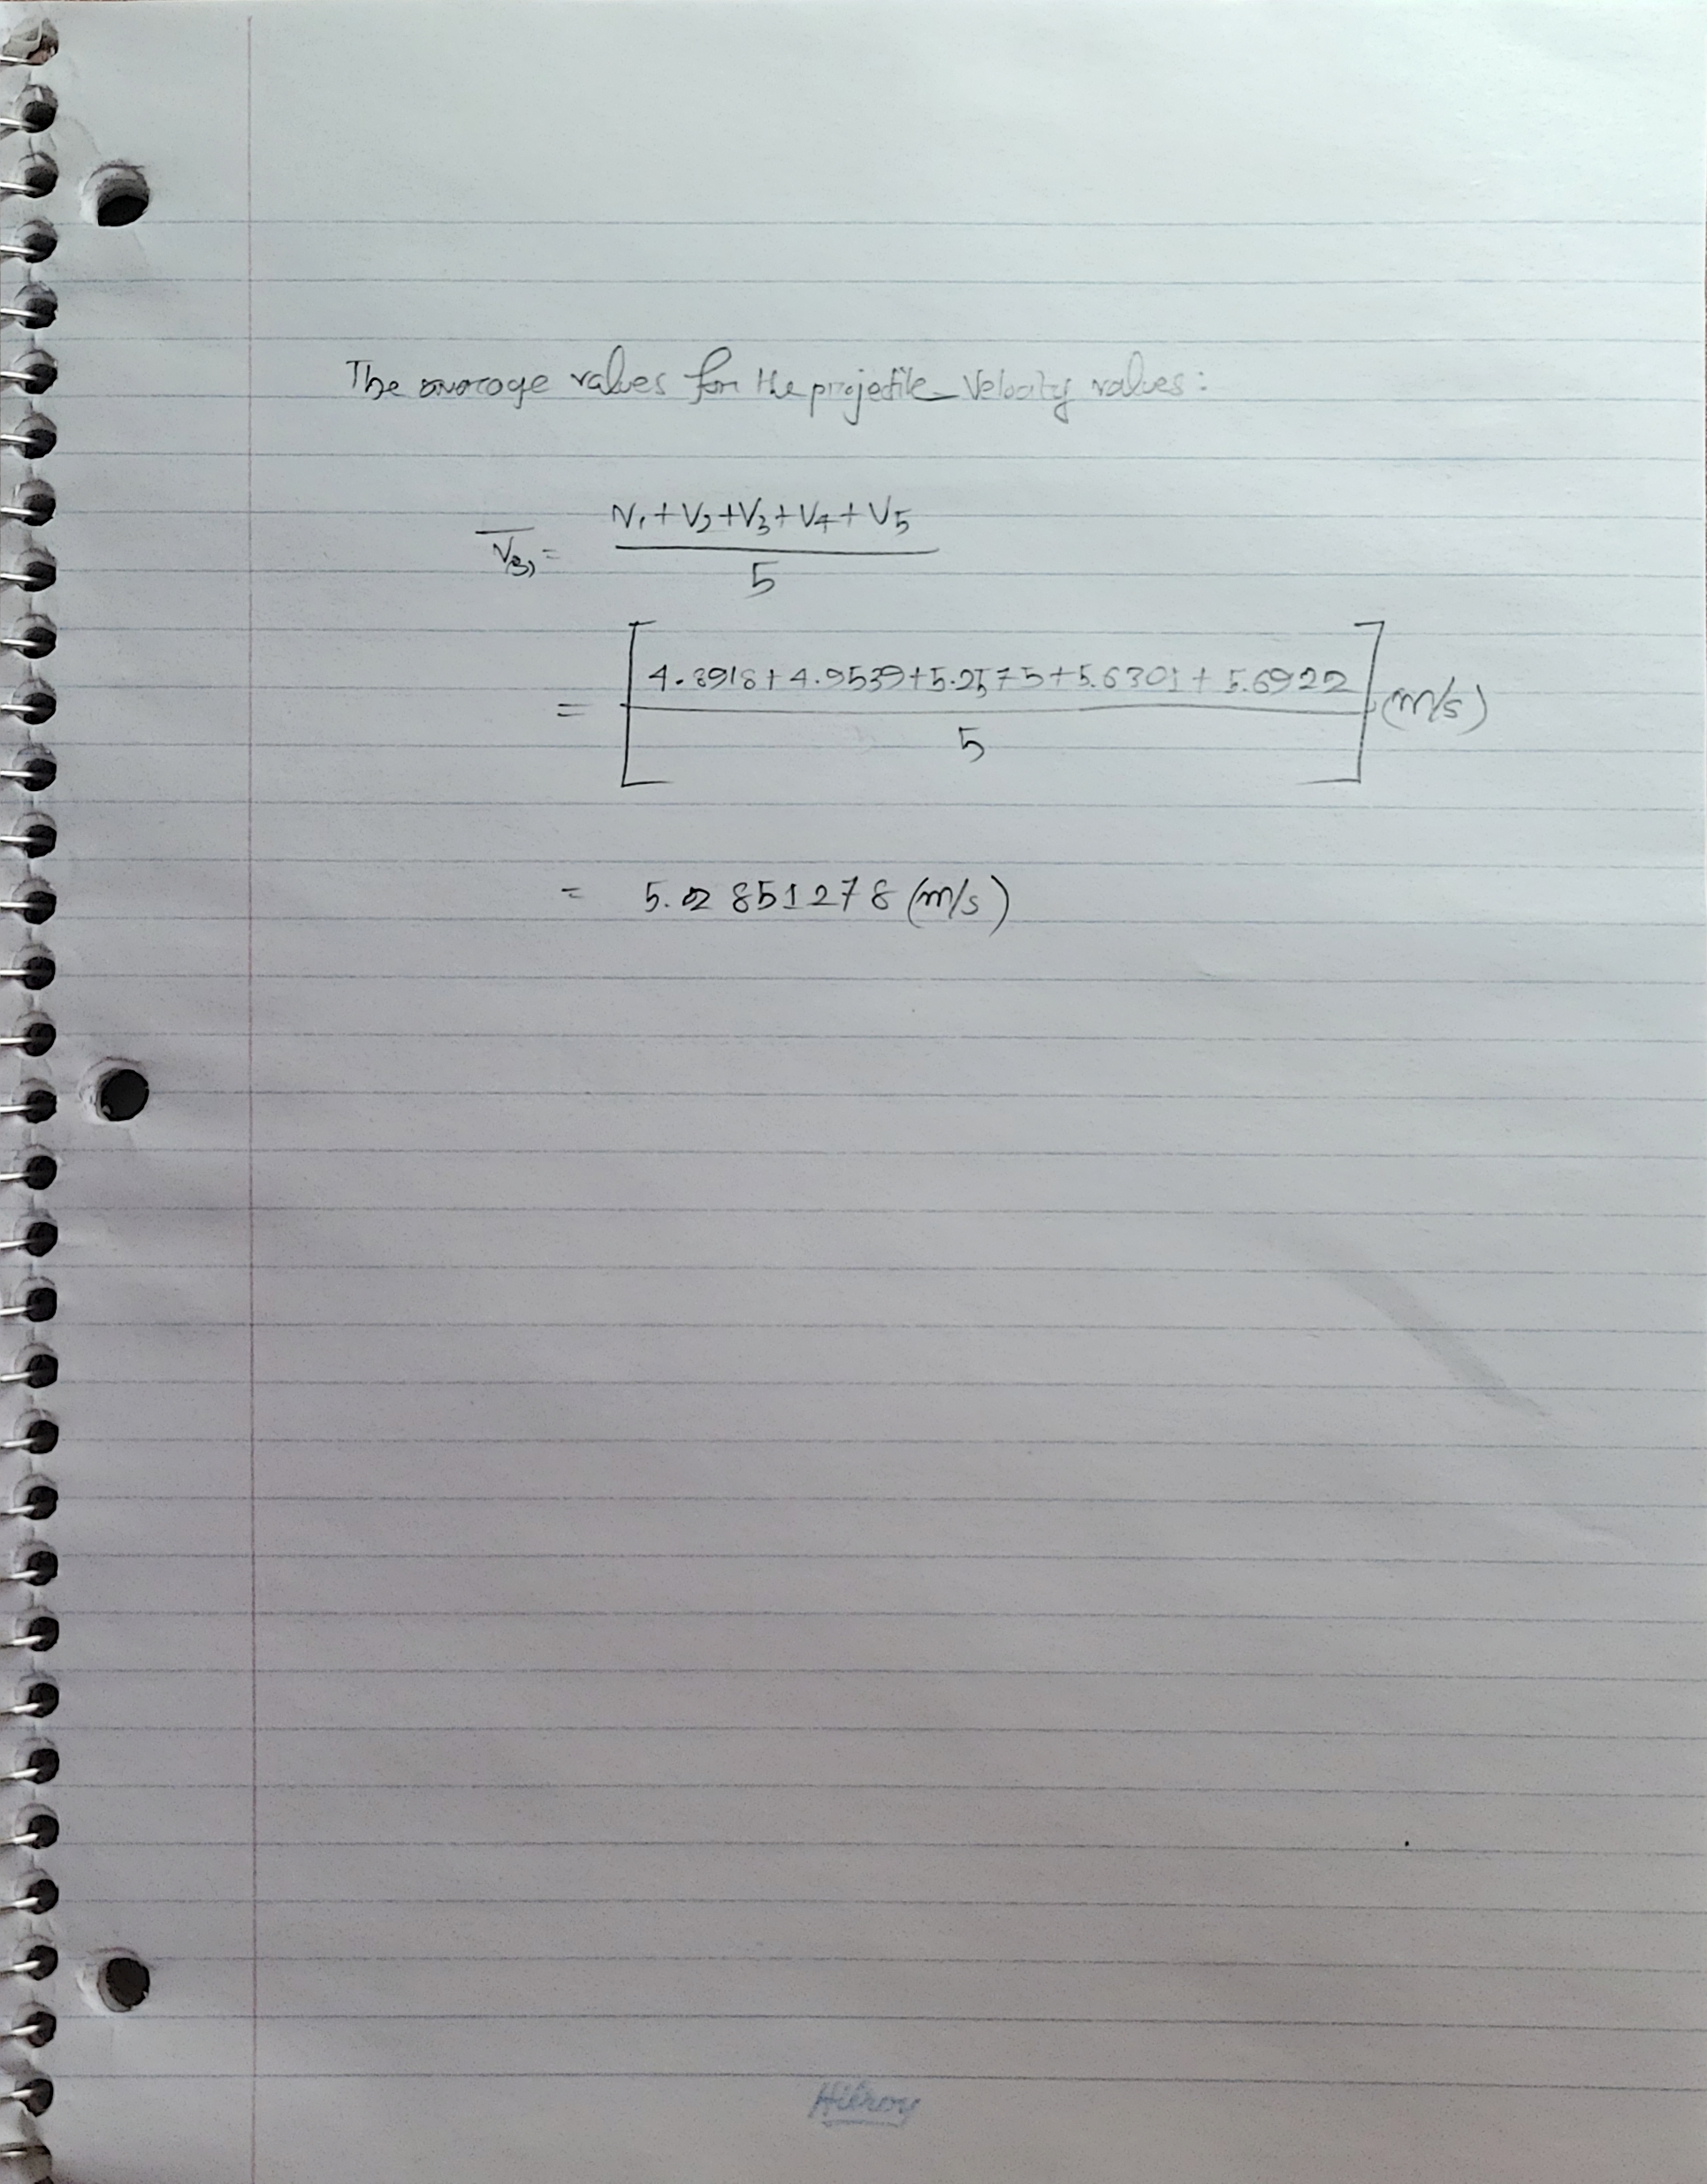 The average values for the projectile Velocity values:
V(3) = V1+V2+V3+V4+V5
5
= [4.3918+4.9539+5.2575+5.6301+5.6922] (m/s)
5
= 5.02851278 (m/s)
Hilroy